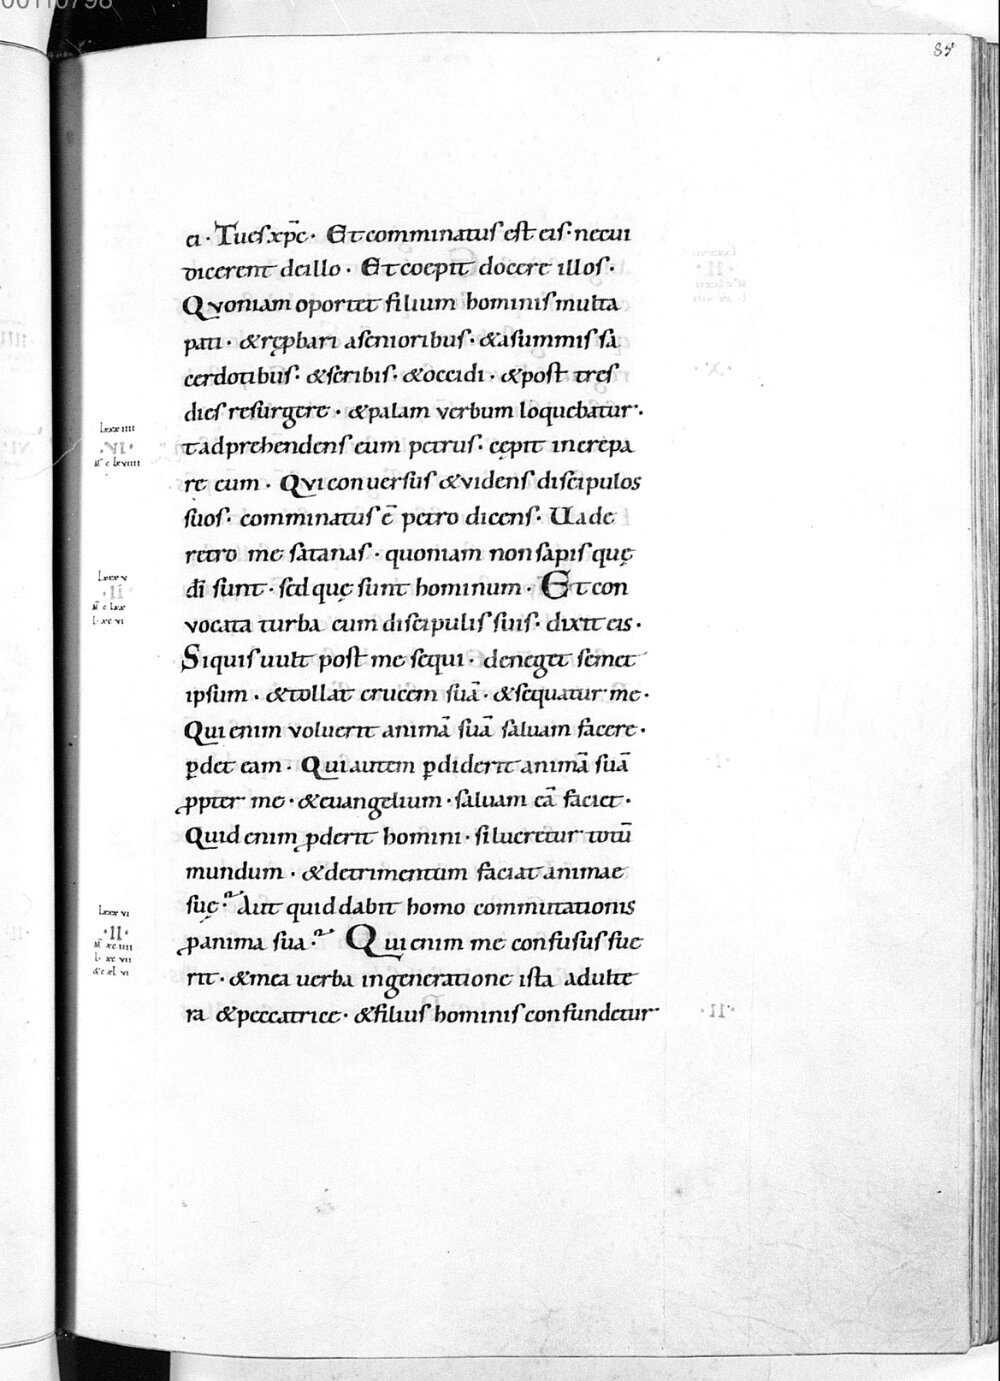 00110798
85
ei · Tu es xp̄c · Et comminatus est eis · ne cui
dicerent de illo · Et coepit docere illos ·
Quoniam oportet filium hominis multa
pati · & rep̱bari a senioribus · & a summis sa
cerdotibus · & scribis · & occidi · & post tres
dies resurgere · & palam verbum loquebatur ·
Lxxx iiii
· VI ·
t adprehendens eum petrus · cępit increpa
re eum · Qui conuersus & videns discipulos
suos · comminatus ē petro dicens · Uade
retro me satanas · quoniam non sapis quę
Lxxx v
· II ·
dī sunt · sed quę sunt hominum · Et con
vocata turba cum discipulis suis · dixit eis ·
Si quis uult post me sequi · deneget semet
ipsum · & tollat crucem suā · & sequatur me ·
Qui enim voluerit animā suā saluam facere ·
p̱det eam · Qui autem p̱diderit animā suā
ꝓpter me · & euangelium · saluam eā faciet ·
Quid enim ꝓderit homini · si lucretur totū
mundum · & detrimentum faciat animae
Lxxx vi
· II ·
suę ? Aut quid dabit homo commutationis
ꝓ anima sua ? Qui enim me confusus fue
rit · & mea verba in generatione ista adulte
ra & peccatrice · & filius hominis confundetur